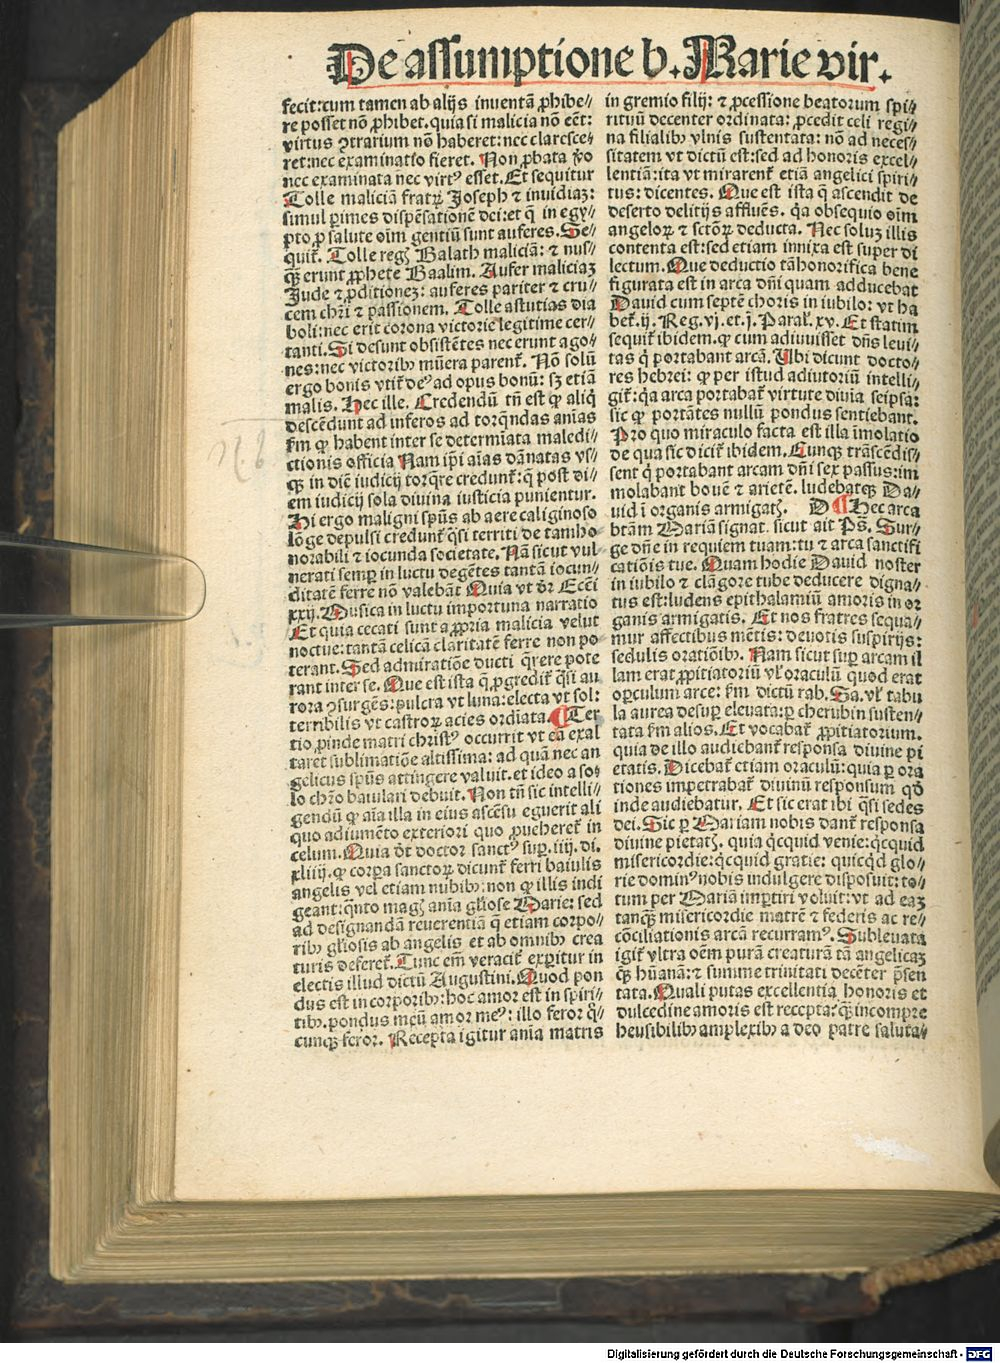 De assumptione b. Marie vir.
fecit: cum tamen ab alijs inuentā ꝓhibe⸗
re posset nō ꝓhibet. quia si malicia nō eēt:
virtus ꝯtrarium nō haberet: nec claresce⸗
ret: nec examinatio fieret. Non ꝓbata ꝟo
nec examinata nec virtꝰ esset. Et sequitur
Tolle maliciā fratrꝝ Joseph ⁊ inuidiaꝫ:
simul ꝑimes dispēsationē dei: et q̄ in egy⸗
pto ꝓ salute oīm gentiū sunt auferes. Se⸗
quit᷑. Tolle regꝭ Balath maliciā: ⁊ nus⸗
qꝫ erunt ꝓphete Baalim. Aufer maliciaꝫ
Jude ⁊ ꝓditioneꝫ: auferes pariter ⁊ cru⸗
cem chr̄i ⁊ passionem. Tolle astutias dia
boli: nec erit corona victorie legitime cer⸗
tanti. Si desunt obsistētes nec erunt ago⸗
nes: nec victoribꝰ mūera parent᷑. Nō solū
ergo bonis vtit᷑ deꝰ ad opus bonū: sꝫ etiā
malis. Hec ille. Credendū tn̄ est ꝙ aliq̄
descēdunt ad inferos ad torq̄ndas aīas
fm ꝙ habent inter se determīata maledi⸗
ctionis officia Nam ip̄i aīas dānatas vs⸗
qꝫ in diē iudicij torq̄re credunt᷑: q̄ post di⸗
em iudicij sola diuina iusticia punientur.
Hi ergo maligni spūs ab aere caliginoso
lōge depulsi credunt᷑ q̄si territi de tam ho
norabili ⁊ iocunda societate. Nā sicut vul
nerati semꝑ in luctu degētes tantā iocun⸗
ditatē ferre nō valebāt Quia vt dr̄ Ecc̄i
xxij. Musica in luctu importuna narratio
Et quia cecati sunt a ꝓpria malicia velut
noctue: tantā celicā claritatē ferre non po
terant. Sed admiratiōe ducti q̄rere pote
rant inter se. Que est ista q̄ ꝓgredit᷑ q̄si au
rora ꝯsurgēs: pulcra vt luna: electa vt sol:
terribilis vt castroꝝ acies ordīata. ¶ Ter
tio ꝓinde matri christꝰ occurrit vt eā exal
taret sublimatiōe altissima: ad quā nec an
gelicus spūs attingere valuit. et ideo a so⸗
lo chr̄o baiulari debuit. Non tn̄ sic intelli⸗
gendū ꝙ aīa illa in eius ascēsu eguerit ali
quo adiumēto exteriori quo ꝓueheret᷑ in
celum. Quia dt̄ doctor sanctꝰ suꝑ. iiij. di.
xliiij. ꝙ corꝑa sanctoꝝ dicunt᷑ ferri baiulis
angelis vel etiam nubibꝰ: non ꝙ illis indi
geant: q̄nto magꝭ aīa gl̄iose Marie: sed
ad designandā reuerentiā q̄ etiam corpo⸗
ribꝰ gl̄iosis ab angelis et ab omnibꝰ crea
turis deferet᷑. Tunc em̄ veracit᷑ exꝑitur in
electis illud dictū Augustini. Quod pon
dus est in corporibꝰ: hoc amor est in spiri⸗
tibꝰ. pondus meū amor meꝰ: illo feror q̄⸗
cunqꝫ feror. Recepta igitur aīa matris
in gremio filij: ⁊ ꝓcessione beatorum spi⸗
rituū decenter ordinata: ꝓcedit celi regi⸗
na filialibꝰ vlnis sustentata: nō ad neces⸗
sitatem vt dictū est: sed ad honoris excel⸗
lentiā: ita vt mirarent᷑ etiā angelici spiri⸗
tus: dicentes. Que est ista q̄ ascendit de
deserto delitijs affluēs. q̄a obsequio oīm
angeloꝝ ⁊ sctōꝝ deducta. Nec soluꝫ illis
contenta est: sed etiam innixa est super di
lectum. Que deductio tā honorifica bene
figurata est in arca dn̄i quam adducebat
Dauid cum septē choris in iubilo: vt ha
bet᷑. ij. Reg. vj. et. j. Paral᷑. xv. Et statim
sequit᷑ ibidem. ꝙ cum adiuuisset dn̄s leui⸗
tas q̄ portabant arcā. Ubi dicunt docto⸗
res hebrei: ꝙ per istud adiutoriū intelli⸗
git᷑: q̄a arca portabat᷑ virtute diuīa seipsa:
sic ꝙ portātes nullū pondus sentiebant.
Pro quo miraculo facta est illa īmolatio
de qua sic dicit᷑ ibidem. Cunqꝫ trāscēdis⸗
sent q̄ portabant arcam dn̄i sex passus: im
molabant bouē ⁊ arietē. ludebatqꝫ Da⸗
uid ī organis armigatꝭ. D ¶ Hec arca
btām Mariā signat. sicut ait Ps̄. Sur⸗
ge dn̄e in requiem tuam: tu ⁊ arca sanctifi
catiōis tue. Quam hodie Dauid noster
in iubilo ⁊ clāgore tube deducere digna⸗
tus est: ludens epithalamiū amoris in or
ganis armigatis. Et nos fratres sequa⸗
mur affectibus mētis: deuotis suspirijs:
sedulis oratiōibꝰ. Nam sicut suꝑ arcam il
lam erat ꝓpitiatoriū vl᷑ oraculū quod erat
oꝑculum arce: fm dictū rab. Sa. vl᷑ tabu
la aurea desuꝑ eleuata: ꝑ cherubin susten⸗
tata fm alios. Et vocabat᷑ ꝓpitiatorium.
quia de illo audiebant᷑ responsa diuine pi
etatis. Dicebat᷑ etiam oraculū: quia ꝑ ora
tiones impetrabat᷑ diuinū responsum qd̄
inde audiebatur. Et sic erat ibi q̄si sedes
dei. Sic ꝑ Mariam nobis dant᷑ responsa
diuine pietatꝭ. quia q̄cquid venie: q̄cquid
misericordie: q̄cquid gratie: quicq̄d glo⸗
rie dominꝰ nobis indulgere disposuit: to⸗
tum per Mariā imꝑtiri voluit: vt ad eaꝫ
tanqꝫ misericordie matrē ⁊ federis ac re⸗
cōciliationis arcā recurramꝰ. Subleuata
igit᷑ vltra oēm purā creaturā tā angelicaꝫ
qꝫ hūanā: ⁊ summe trinitati decēter p̄sen
tata. Quali putas excellentia honoris et
dulcedine amoris est recepta: qꝫ incompre
hensibilibꝰ amplexibꝰ a deo patre saluta⸗
Digitalisierung gefördert durch die Deutsche Forschungsgemeinschaft - DFG